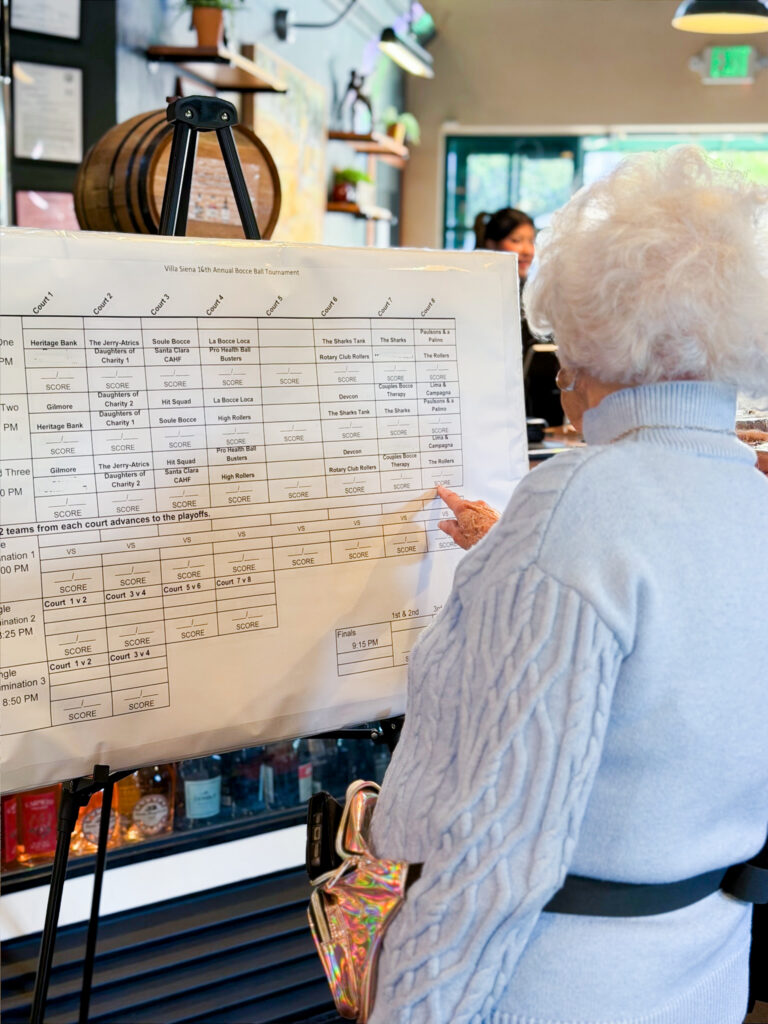 Villa Siena 16th Annual Bocce Ball Tournament
Court 1 Court 2 Court 3 Court 4 Court 5 Court 6 Court 7 Court 8
One
PM
Heritage Bank The Jerry-Atrics Soule Bocce La Bocce Loca The Sharks Tank The Sharks Paulsons & a Palino
Daughters of Charity 1 Santa Clara CAHF Pro Health Ball Busters Rotary Club Rollers The Rollers
SCORE SCORE SCORE SCORE SCORE SCORE SCORE SCORE
Two
PM
Gilmore Daughters of Charity 2 Hit Squad La Bocce Loca Devcon Couples Bocce Therapy Lima & Campagna
Heritage Bank Daughters of Charity 1 Soule Bocce High Rollers The Sharks Tank The Sharks Paulsons & a Palino
SCORE SCORE SCORE SCORE SCORE SCORE SCORE SCORE
Three
PM
Gilmore The Jerry-Atrics Hit Squad Pro Health Ball Busters Devcon Couples Bocce Therapy Lima & Campagna
Daughters of Charity 2 Santa Clara CAHF High Rollers Rotary Club Rollers The Rollers
SCORE SCORE SCORE SCORE SCORE SCORE SCORE SCORE
2 teams from each court advances to the playoffs.
VS VS VS VS VS VS VS VS
mination 1
:00 PM
SCORE SCORE SCORE SCORE SCORE SCORE SCORE SCORE
Court 1 v 2 Court 3 v 4 Court 5 v 6 Court 7 v 8
ngle
mination 2
8:25 PM
SCORE SCORE SCORE SCORE
Court 1 v 2 Court 3 v 4
ngle
mination 3
8:50 PM
SCORE SCORE
1st & 2nd
Finals
9:15 PM